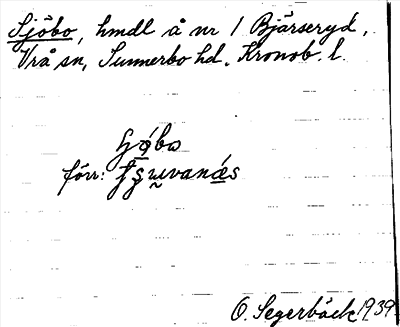 Sjöbo, hmdl å nr 1 Bjärseryd,
Vrå sn, Sunnerbo hd. Kronob. l.
förr:
O. Segerbäck 1939.